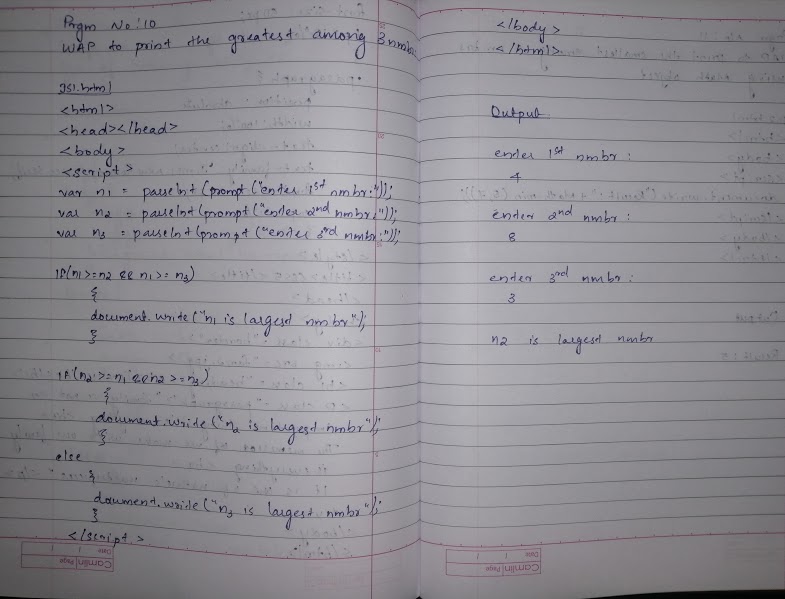 Prgm No: 10
WAP to print the greatest among 3 nmbr
gs1.html
<html>
<head></head>
<body>
<script>
var n1 = parseInt (prompt ("enter 1st nmbr:"));
var n2 = parseInt (prompt ("enter 2nd nmbr:"));
var n3 = parseInt (prompt ("enter 3rd nmbr:"));
if(n1>=n2 && n1>=n3)
{
document.write ("n1 is largest nmbr");
}
if(n2>=n1 && n2>=n3)
{
document.write ("n2 is largest nmbr");
}
else
{
document.write ("n3 is largest nmbr");
}
</script>
Camlin Page
Date / /
</body>
</html>
Output
enter 1st nmbr :
4
enter 2nd nmbr :
8
enter 3rd nmbr :
3
n2 is largest nmbr
Camlin Page
Date / /